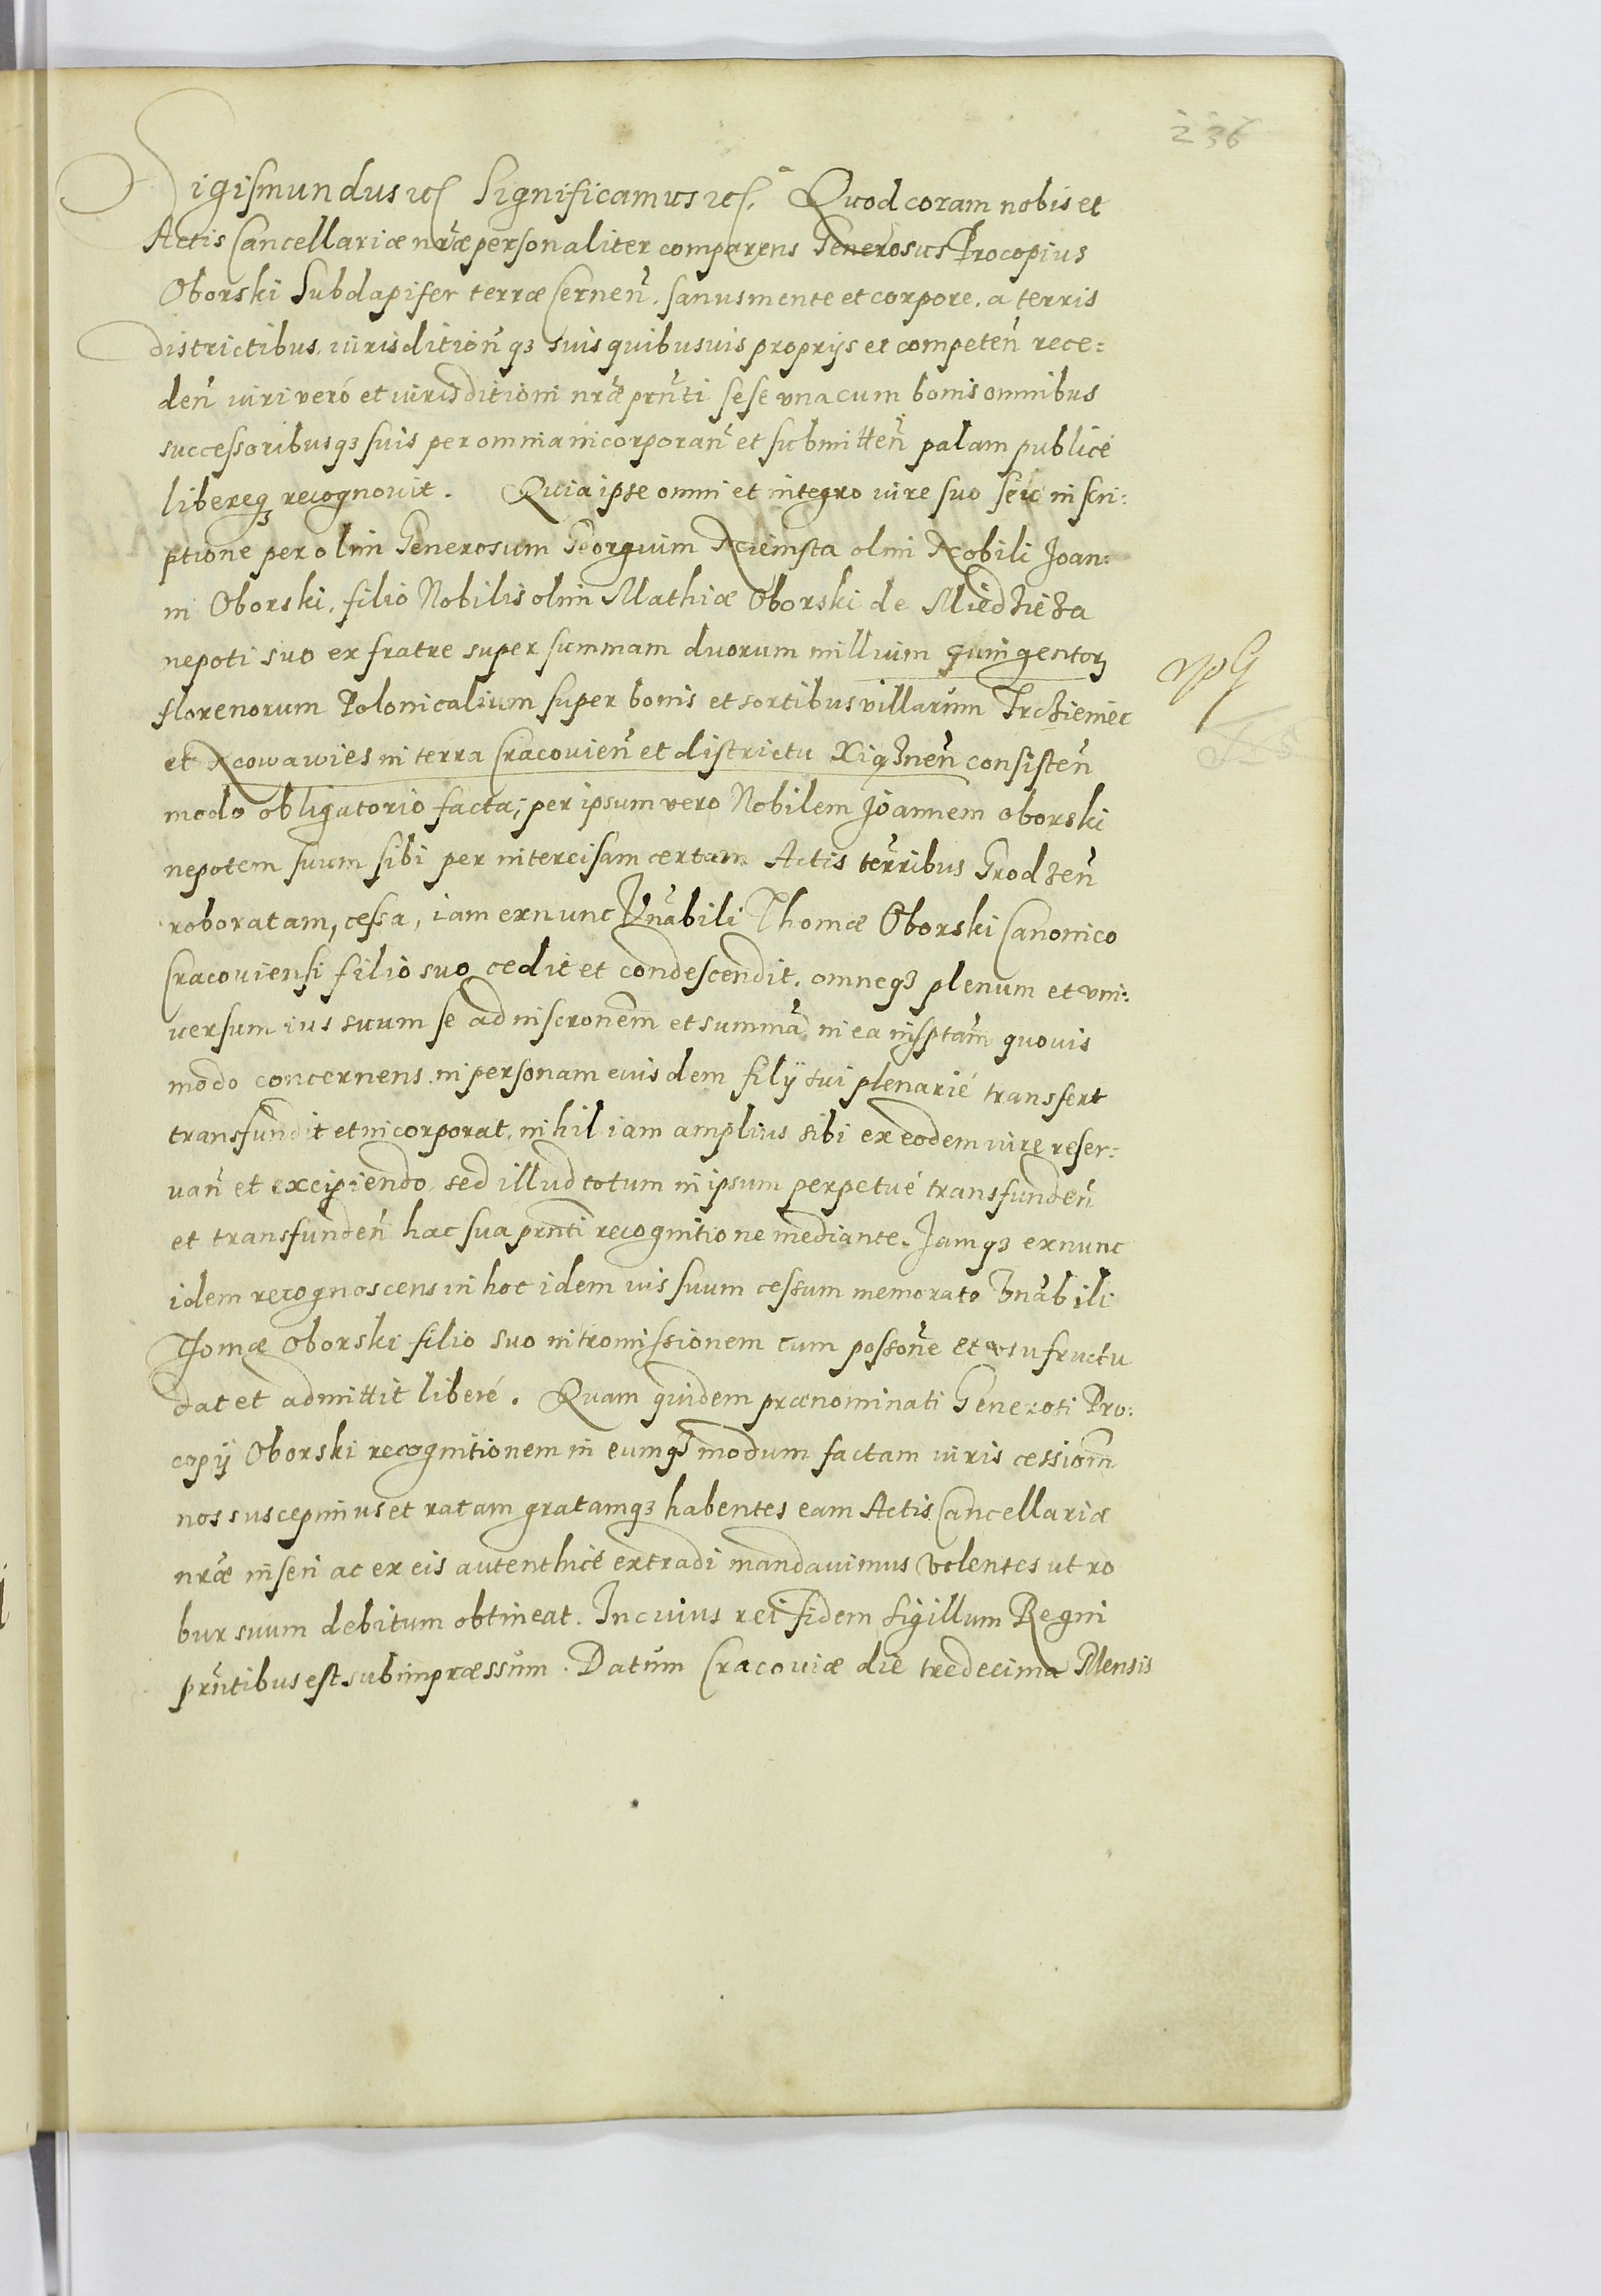 236
Sigismundus etc Significamus etc. Quod coram nobis et
Actis Cancellariæ nr̃æ personaliter comparens Generosus Procopius
Oborski Subdapifer terræ Cernen̄, sanus mente et corpore, a terris
districtibus, iurisdition̄ qȝ suis quibusvis proprijs et competen̄ rece=
den̄ iuri veró et iurisditioni nr̃æ prn̄ti sese vna cum bonis omnibus
successoribusqȝ suis per omnia incorporan̄ et submitten̄ palam publicé
libereqȝ recognouit. Quia ipse omni et integro iure suo seu inscri:
ptione per olim Generosum Georgium Niemsta olim Nobili Joan:
ni Oborski, filio Nobilis olim Mathiæ Oborski de Miedzieza
nepoti suo ex fratre super summam duorum millium quingentorꝝ
florenorum Polonicalium super bonis et sortibus villarum Trczieniec
et Nowawies in terra Cracouien̄ et districtu Xiqznen̄ consisten̄
modo obligatorio facta; per ipsum vero Nobilem Joannem Oborski
nepotem suum sibi per intercisam certam Actis terribus Grodzen̄
roboratam, cessa, iam ex nunc Vnābili Thomæ Oborski Canonico
Cracouiensi filio suo cedit et condescendit, omneqȝ plenum et vni:
uersum ius suum se ad inscron̄em et summā in ea insptam quouis
modo concernens in personam eiusdem filÿ sui plenarié transfert
transfundit et incorporat, nihil iam amplius sibi ex eodem iure reser:
uan̄ et excipiendo, sed illud totum in ipsum perpetué transfunden̄
et transfunden̄ hac sua prn̄ti recognitione mediante. Jamqȝ ex nunc
idem recognoscens in hoc idem ius suum cessum memorato Vnābili
Thomæ Oborski filio suo intromissionem cum posson̄e et vsufructu
dat et admittit liberé. Quam quidem prænominati Generosi Pro:
copij Oborski recognitionem in eumqȝ modum factam iuris cession̄
nos suscepimus et ratam gratamqȝ habentes eam Actis Cancellariæ
nr̃æ inseri ac ex eis autenthicé extradi mandauimus volentes ut ro
bur suum debitum obtineat. In cuius rei fidem sigillum Regni
prn̄tibus est subimpræssum. Datum Cracouiæ die tredecima Mensis